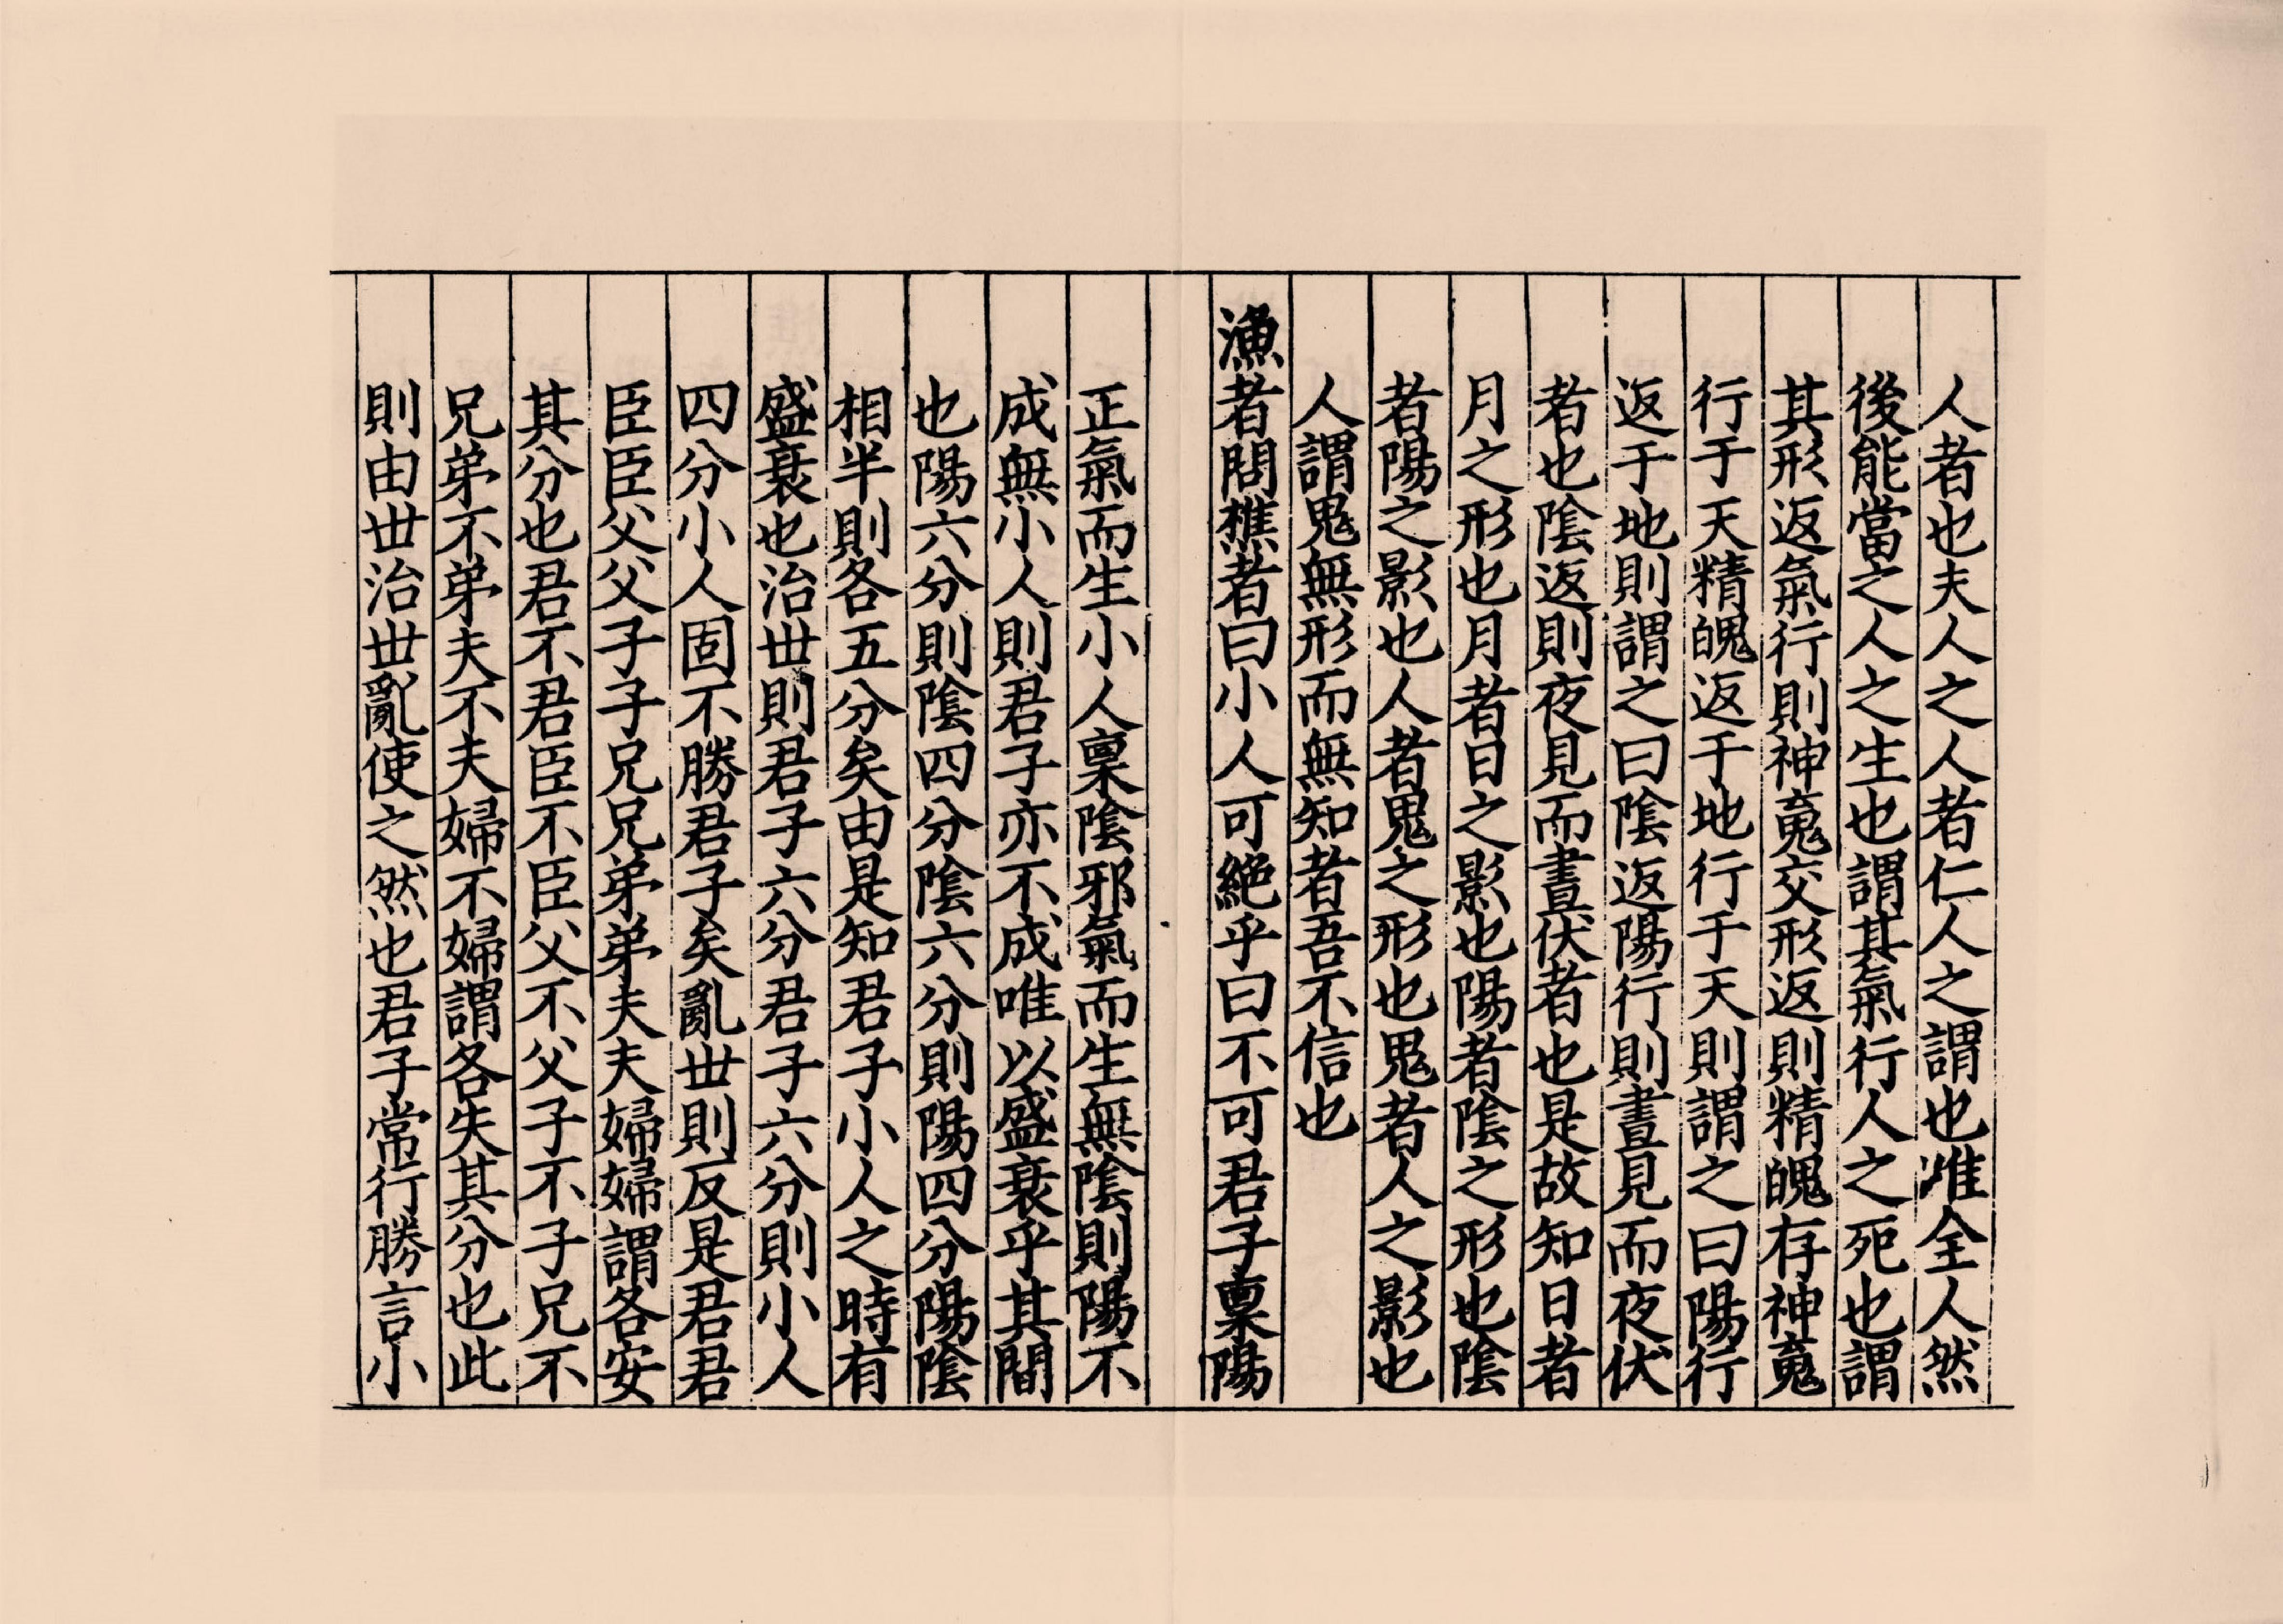 人者也夫人之人者仁人之謂也唯全人然
後能當之人之生也謂其氣行人之死也謂
其形返氣行則神䰟交形返則精魄存神䰟
行于天精魄返于地行于天則謂之曰陽行
返于地則謂之曰陰返陽行則晝見而夜伏
者也陰返則夜見而晝伏者也是故知日者
月之形也月者日之影也陽者陰之形也陰
者陽之影也人者鬼之形也鬼者人之影也
人謂鬼無形而無知者吾不信也
漁者問樵者曰小人可絶乎曰不可君子稟陽
正氣而生小人稟陰邪氣而生無陰則陽不
成無小人則君子亦不成唯以盛衰乎其間
也陽六分則陰四分陰六分則陽四分陽陰
相半則各五分矣由是知君子小人之時有
盛衰也治世則君子六分君子六分則小人
四分小人固不勝君子矣亂世則反是君君
臣臣父父子子兄兄弟弟夫夫婦婦謂各安
其分也君不君臣不臣父不父子不子兄不
兄弟不弟夫不夫婦不婦謂各失其分也此
則由世治世亂使之然也君子常行勝言小